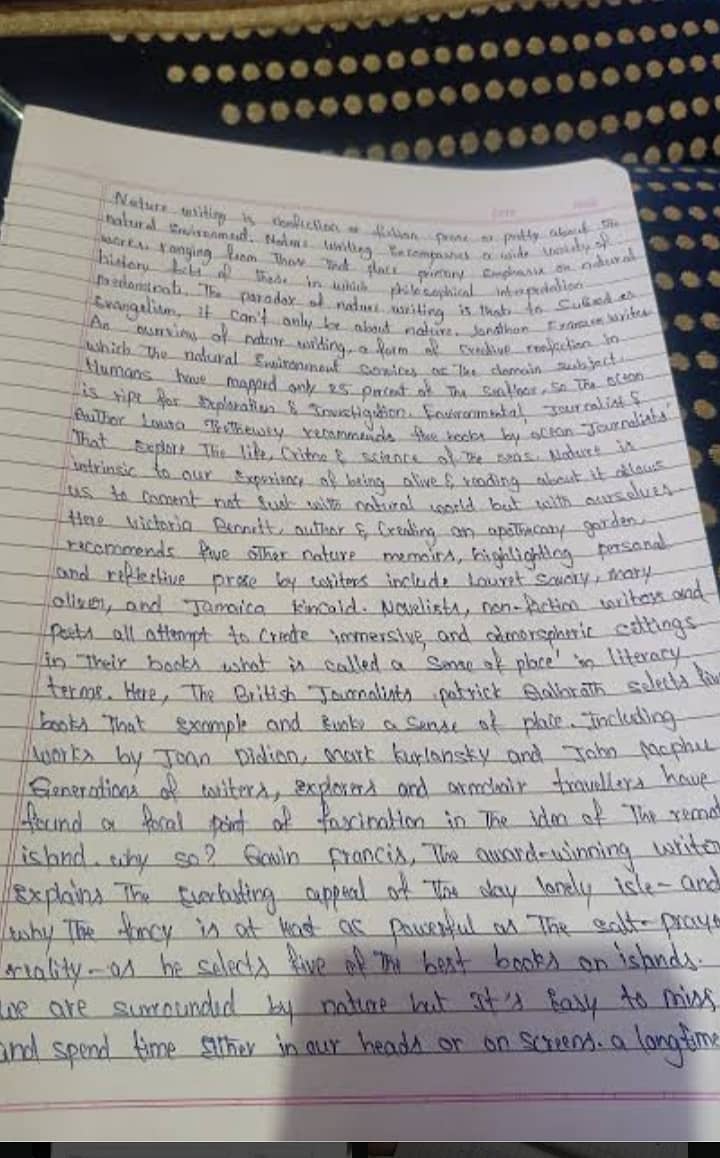 Nature writing is nonfiction or fiction prose or poetry about the
natural Environment. Nature writing Encompasses a wide variety of
works, ranging from Those That place primary Emphasis on natural
history facts of those in which philosophical interpretation
Predominate. The paradox of nature writing is that to Succeed as
Evangelism, it can't only be about nature. Jonathan Franzen writes
An overview of nature writing, a form of creative nonfiction in
which the natural Environment services as The domain subject.
Humans have mapped only 25 percent of The seafloor, so The ocean
is ripe for Exploration & Investigation. Environmental Journalist &
Author Laura recommends five books by ocean Journalists'
That Explore The life, & science of The seas. Nature is
intrinsic to our Experience of being alive & reading about it allows
us to connect not Just with natural world but with ourselves
Here Victoria Bennett, author & Creating an apothecary garden,
recommends five other nature memoirs, highlighting personal
and reflective prose by writers include Lauret Savory, mary
oliver, and Jamaica kincaid. Novelists, non-fiction writers and
Poets all attempt to Create immersive, and atmorspheric cettings
in Their books what is called a Sense of place' in literacy
terms. Here, The British Journalists patrick Galbrath selects five
books That Example and Evoke a sense of place. Including
works by Joan Didion, mark kurlansky and John Mcphee
Generations of writers, Explorers and armchair travellers have
found a foral point of fascination in The idea of The remot
island. why so? Gavin francis, The award-winning writer
Explains The Everlasting appeal of The day lonely isle- and
why The fancy is at least as powerful as The salt-praye
reality-as he selects five of The best books on islands.
we are surrounded by nature but It's Easy to miss,
and spend time Either in our heads or on screens. a longtime